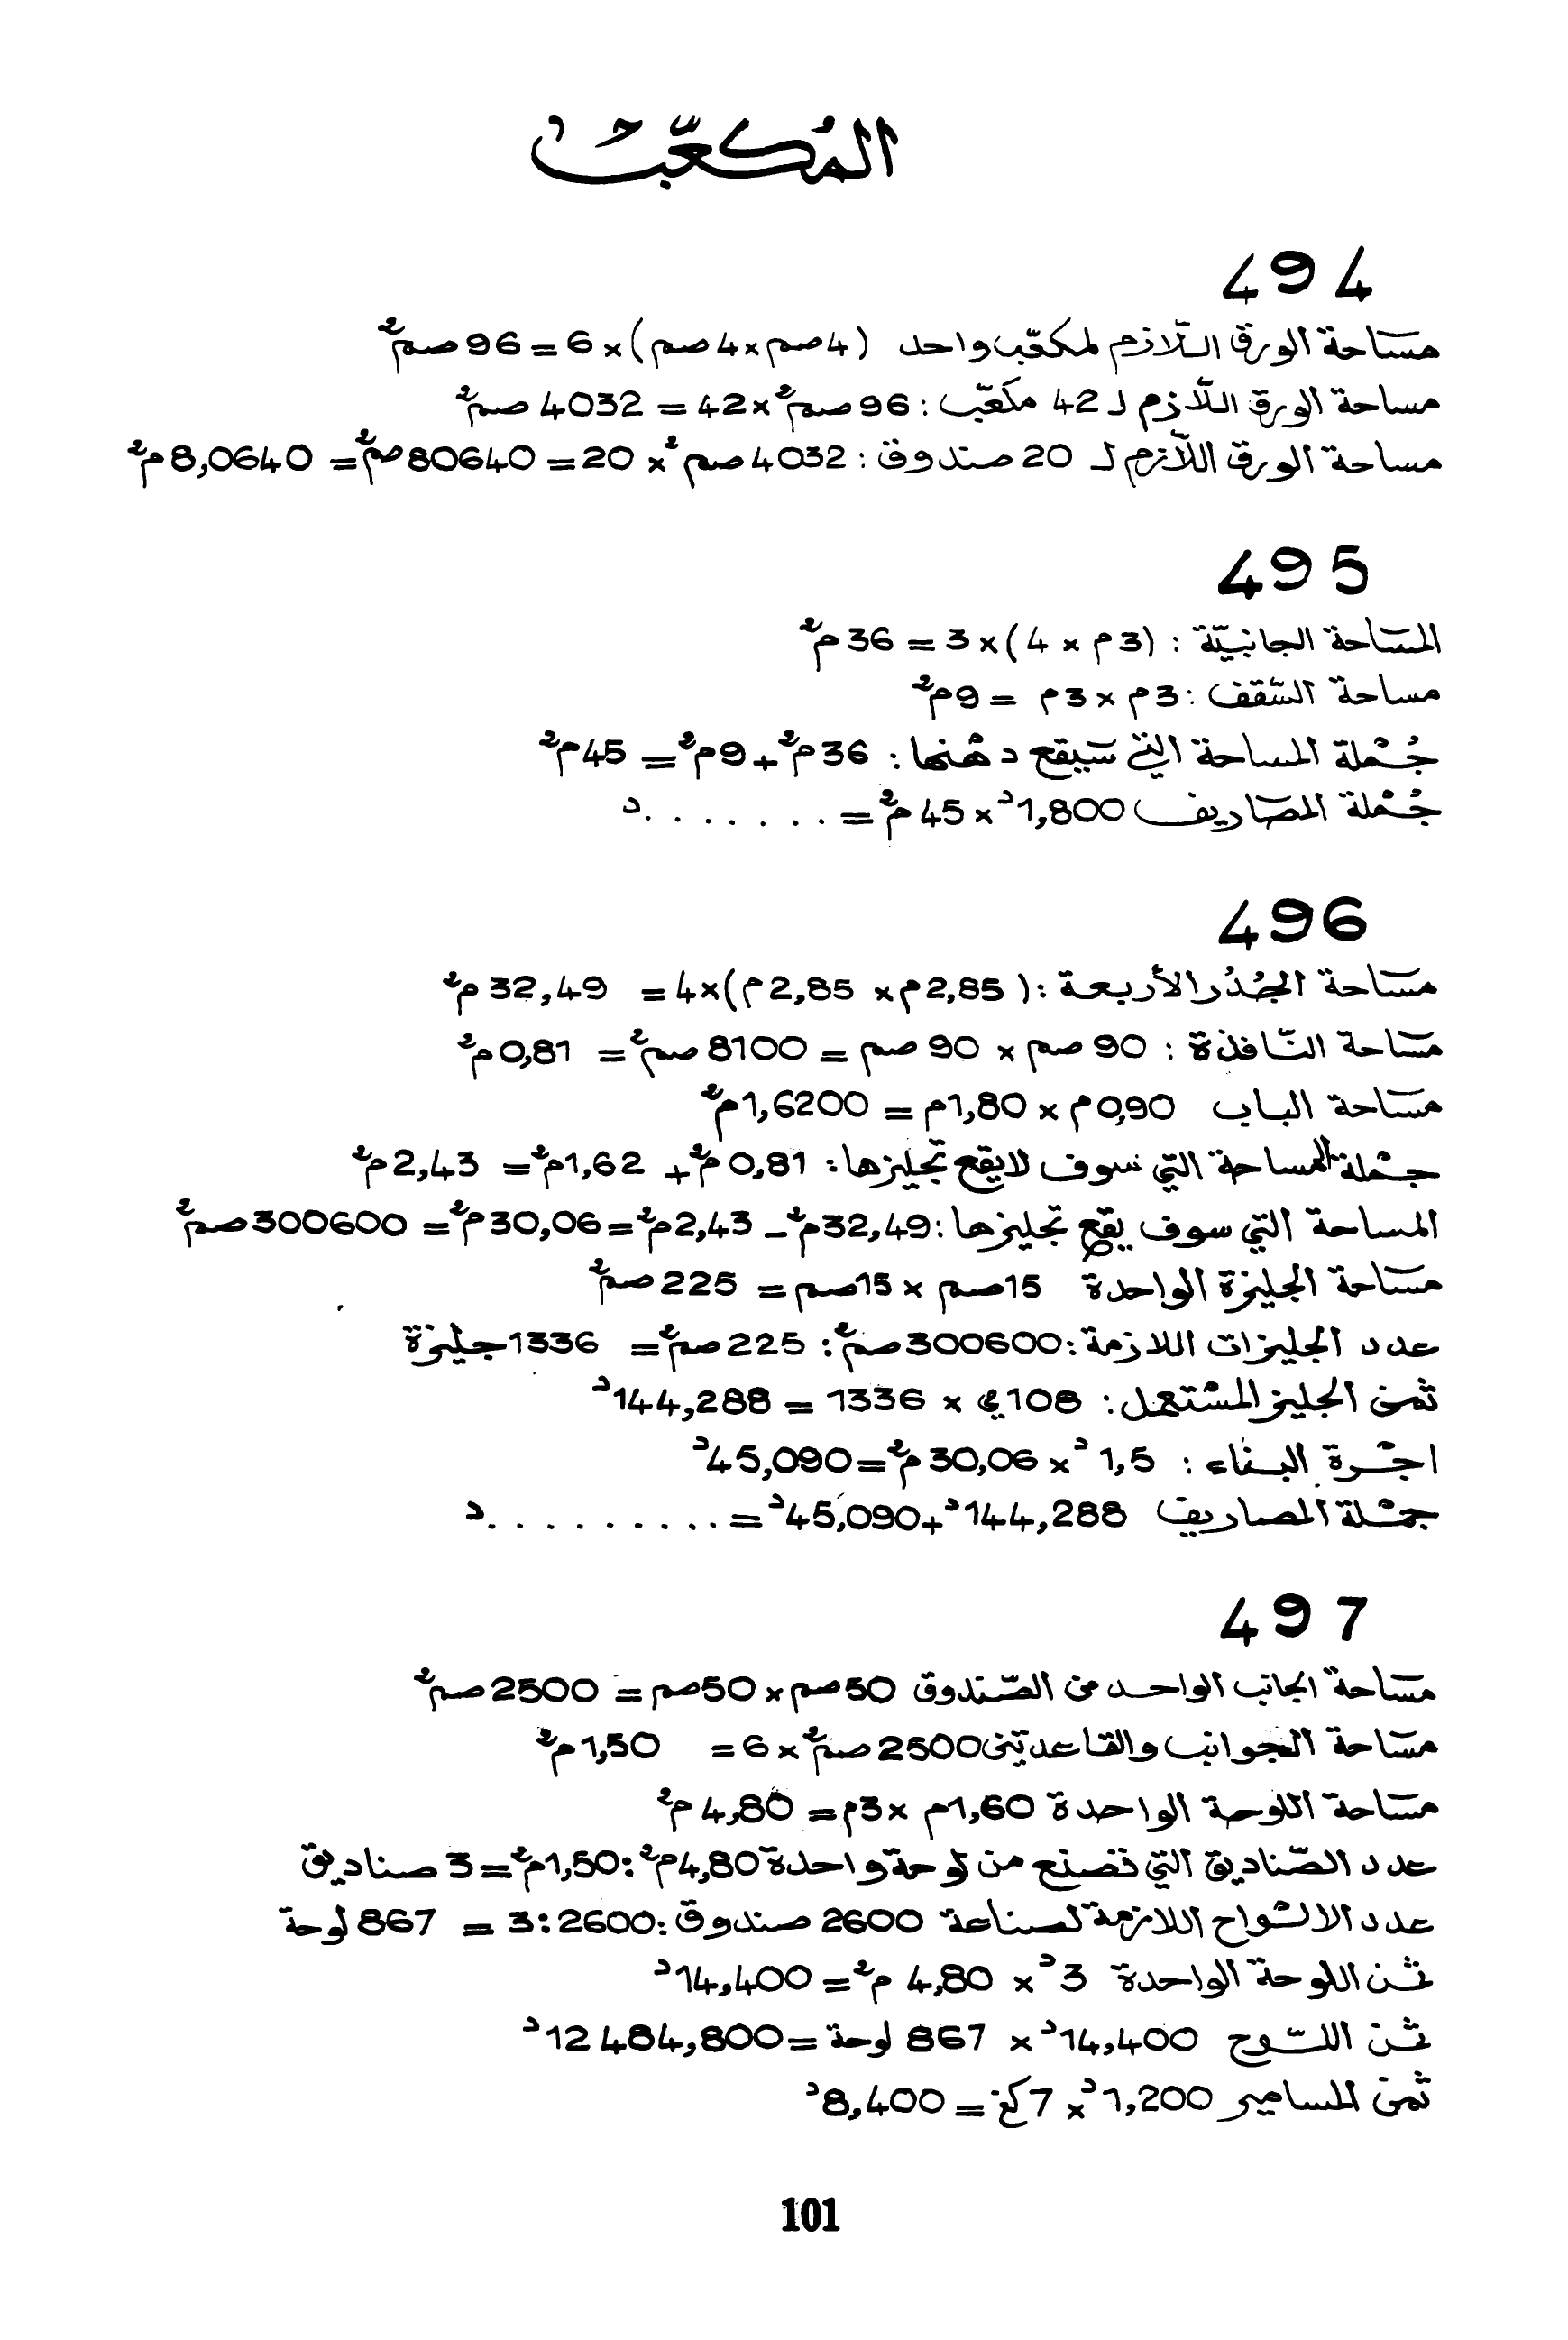 المُكعّب
494
مسَاحة الورق اللّازم لمكعّب واحد (4صم×4صم)×6=96صم²
مساحة الورق اللّازم لـ 42 مكعّب : 96صم²×42 = 4032 صم²
مساحة الورق اللّازم لـ 20 صندوق : 4032 صم² × 20 = 80640صم² = 8,0640م²
495
المسَاحة الجانبيّة : (3م × 4)×3 = 36م²
مساحة السّقف : 3م ×3م = 9م²
جُمْلة المساحة التي سَيقع دهْنها : 36م²+9م² = 45م²
جُمْلة المصَاريف 1,800د× 45م² = .......د
496
مسَاحة الجُدُر الأربعة : (2,85م× 2,85م)×4 = 32,49م²
مسَاحة النّافذة : 90 صم × 90 صم = 8100صم² = 0,81م²
مسَاحة الباب 0,90م × 1,80م = 1,6200م²
جملة المساحة التي سوف لا يقع تجليزها : 0,81م² + 1,62م² = 2,43م²
المساحة التي سوف يقع تجليزها : 32,49م² - 2,43م² = 30,06م² = 300600صم²
مسَاحة الجليزة الواحدة 15صم ×15صم = 225صم²
عدد الجليزات اللازمة : 300600صم² : 225صم² = 1336جليزة
ثمن الجليز المسْتعمل : 108ي × 1336 = 144,288د
اجْرة البناء : 1,5د× 30,06م²=45,090د
جمْلة المصاريف 144,288د+45,090د=.........د
497
مسَاحة الجانب الواحد من الصّندوق 50صم×50صم = 2500صم²
مسَاحة الجوانب والقاعدتين2500صم²×6= 1,50م²
مسَاحة اللوحة الواحدة 1,60م ×3م= 4,80م²
عدد الصّناديق التي تصنع من لوحة واحدة 4,80م²:1,50م²=3 صناديق
عدد الالْواح اللازمة لصناعة 2600 صندوق : 2600:3 = 867 لوحة
ثمن اللوحة الواحدة 3د× 4,80 م²= 14,400د
ثمن اللّوح 14,400د× 867 لوحة =12 484,800د
ثمن المسامير 1,200د× 7كغ = 8,400د
101